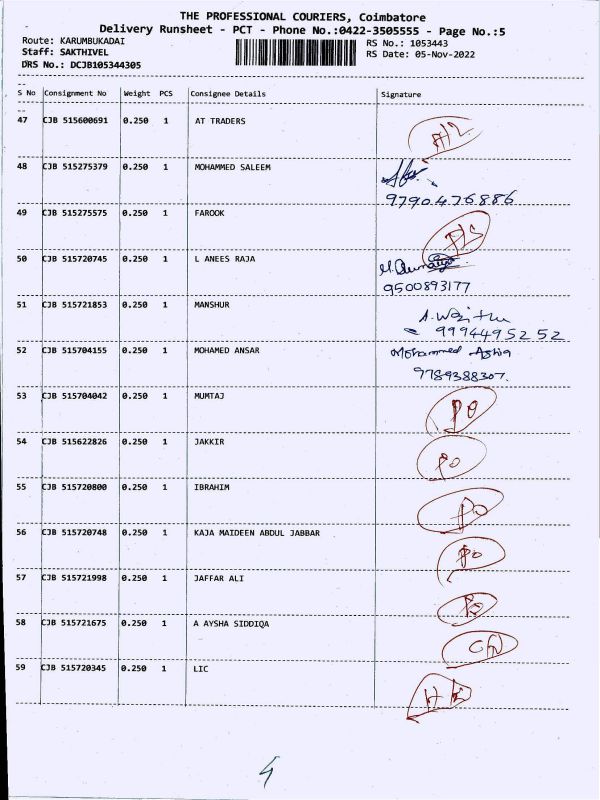 THE PROFESSIONAL COURIERS, Coimbatore
Delivery Runsheet - PCT - Phone No.:0422-3505555 - Page No.:5
Route: KARUMBUKADAI RS No.: 1053443
Staff: SAKTHIVEL RS Date: 05-Nov-2022
DRS No.: DCJB105344305
S No Consignment No Weight PCS Consignee Details Signature
47 CJB 515600691 0.250 1 AT TRADERS
48 CJB 515275379 0.250 1 MOHAMMED SALEEM
9790476886
49 CJB 515275575 0.250 1 FAROOK
50 CJB 515720745 0.250 1 L ANEES RAJA
9500893177
51 CJB 515721853 0.250 1 MANSHUR
9994495252
52 CJB 515704155 0.250 1 MOHAMED ANSAR Mohammed
9789388307.
53 CJB 515704042 0.250 1 MUMTAJ PO
54 CJB 515622826 0.250 1 JAKKIR PO
55 CJB 515720800 0.250 1 IBRAHIM PO
56 CJB 515720748 0.250 1 KAJA MAIDEEN ABDUL JABBAR PO
57 CJB 515721998 0.250 1 JAFFAR ALI PO
58 CJB 515721675 0.250 1 A AYSHA SIDDIQA
59 CJB 515720345 0.250 1 LIC